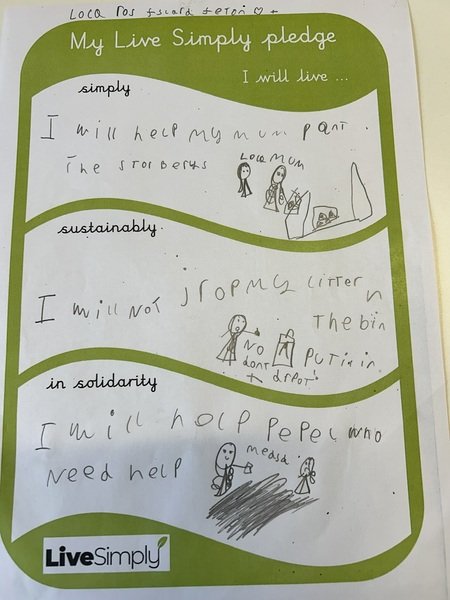 My Live Simply pledge
I will live ...
simply
I will help my mum pant
The storberys
LOCA MUM
sustainably
I will not jropmy litter n
The bin
NO
dont
putitin
in solidarity
I will help pepel who
need help
LiveSimply